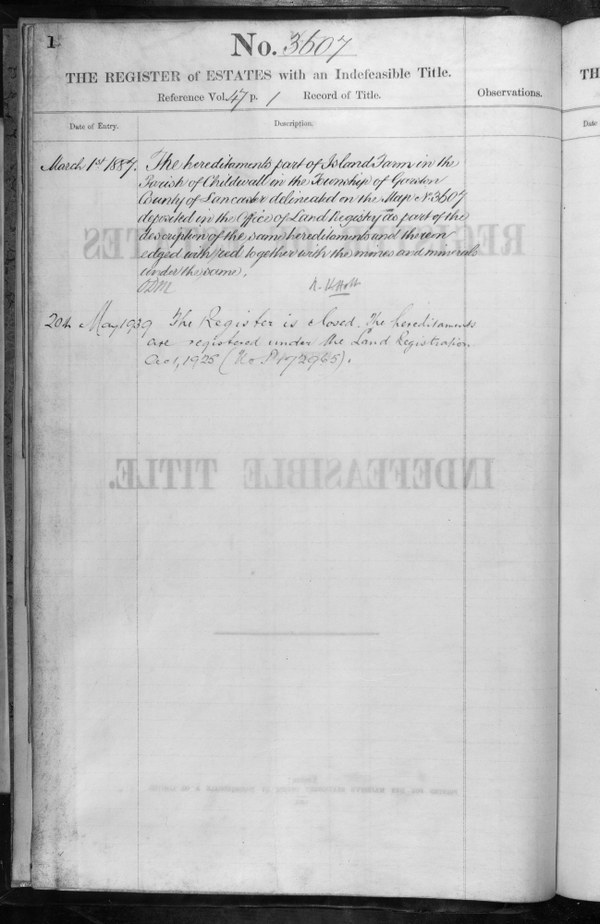 1
No. 3607
THE REGISTER of ESTATES with an Indefeasible Title.
Reference Vol. 47 p. 1 Record of Title.
Observations.
Date of Entry.
Description.
March 1st 1887.
The hereditaments part of Island Farm in the
Parish of Childwall in the Township of Garston
County of Lancaster delineated on the Map No. 3607
deposited in the Office of Land Registry as part of the
description of the same hereditaments and thereon
edged with red together with the mines and minerals
under the same.
20th May 1939
The Register is closed. The hereditaments
are registered under the Land Registration
Act, 1925 (No
TH
Date
REGISTER OF ESTATES
INDEFEASIBLE TITLE.